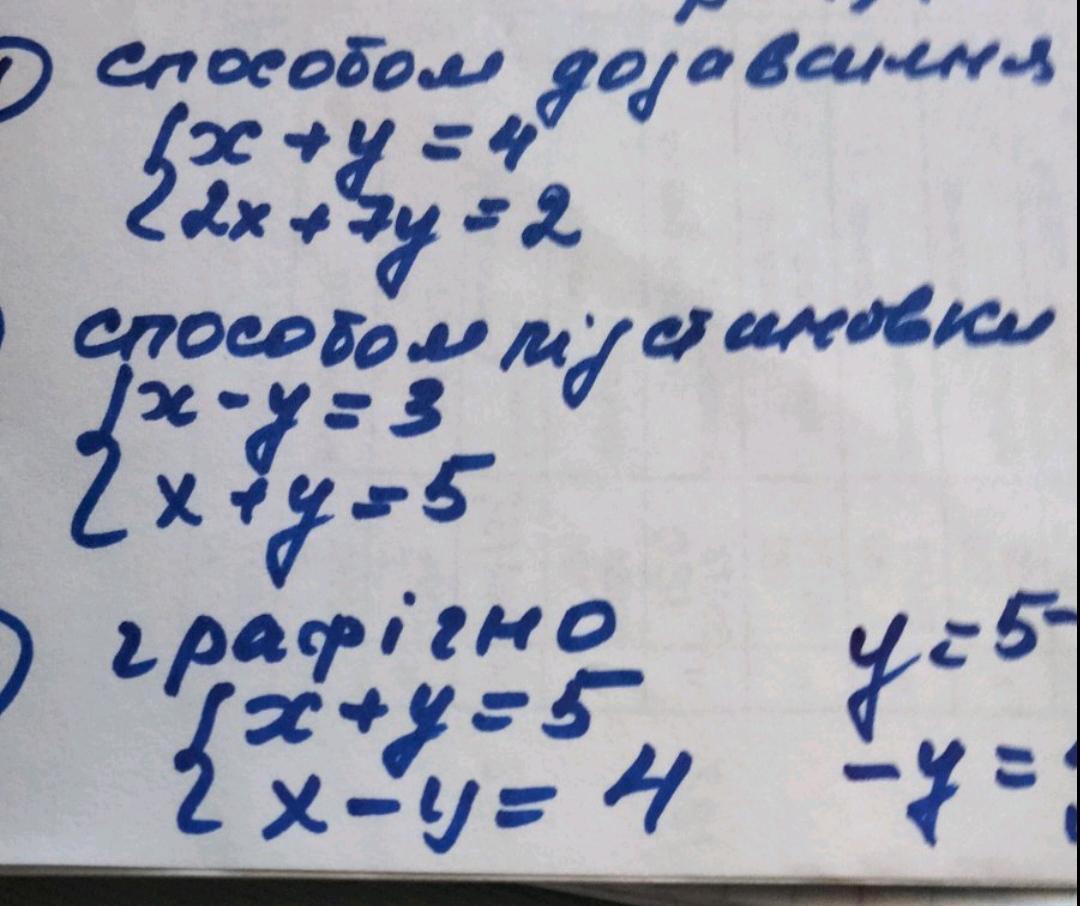 способом додавання
{x + y = 4
2x + 7y = 2
способом підстановки
{x - y = 3
x + y = 5
графічно
{x + y = 5
x - y = 4
y = 5 -
- y =